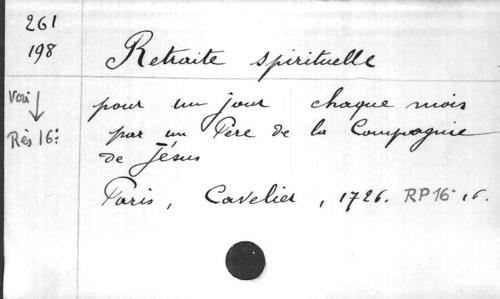 261
198
Retraite spirituelle
Voir
Rés 16:
pour un jour chaque mois
par un Père de la Compagnie
de Jésus
Paris, Cavelier, 1726. RP16- 16.